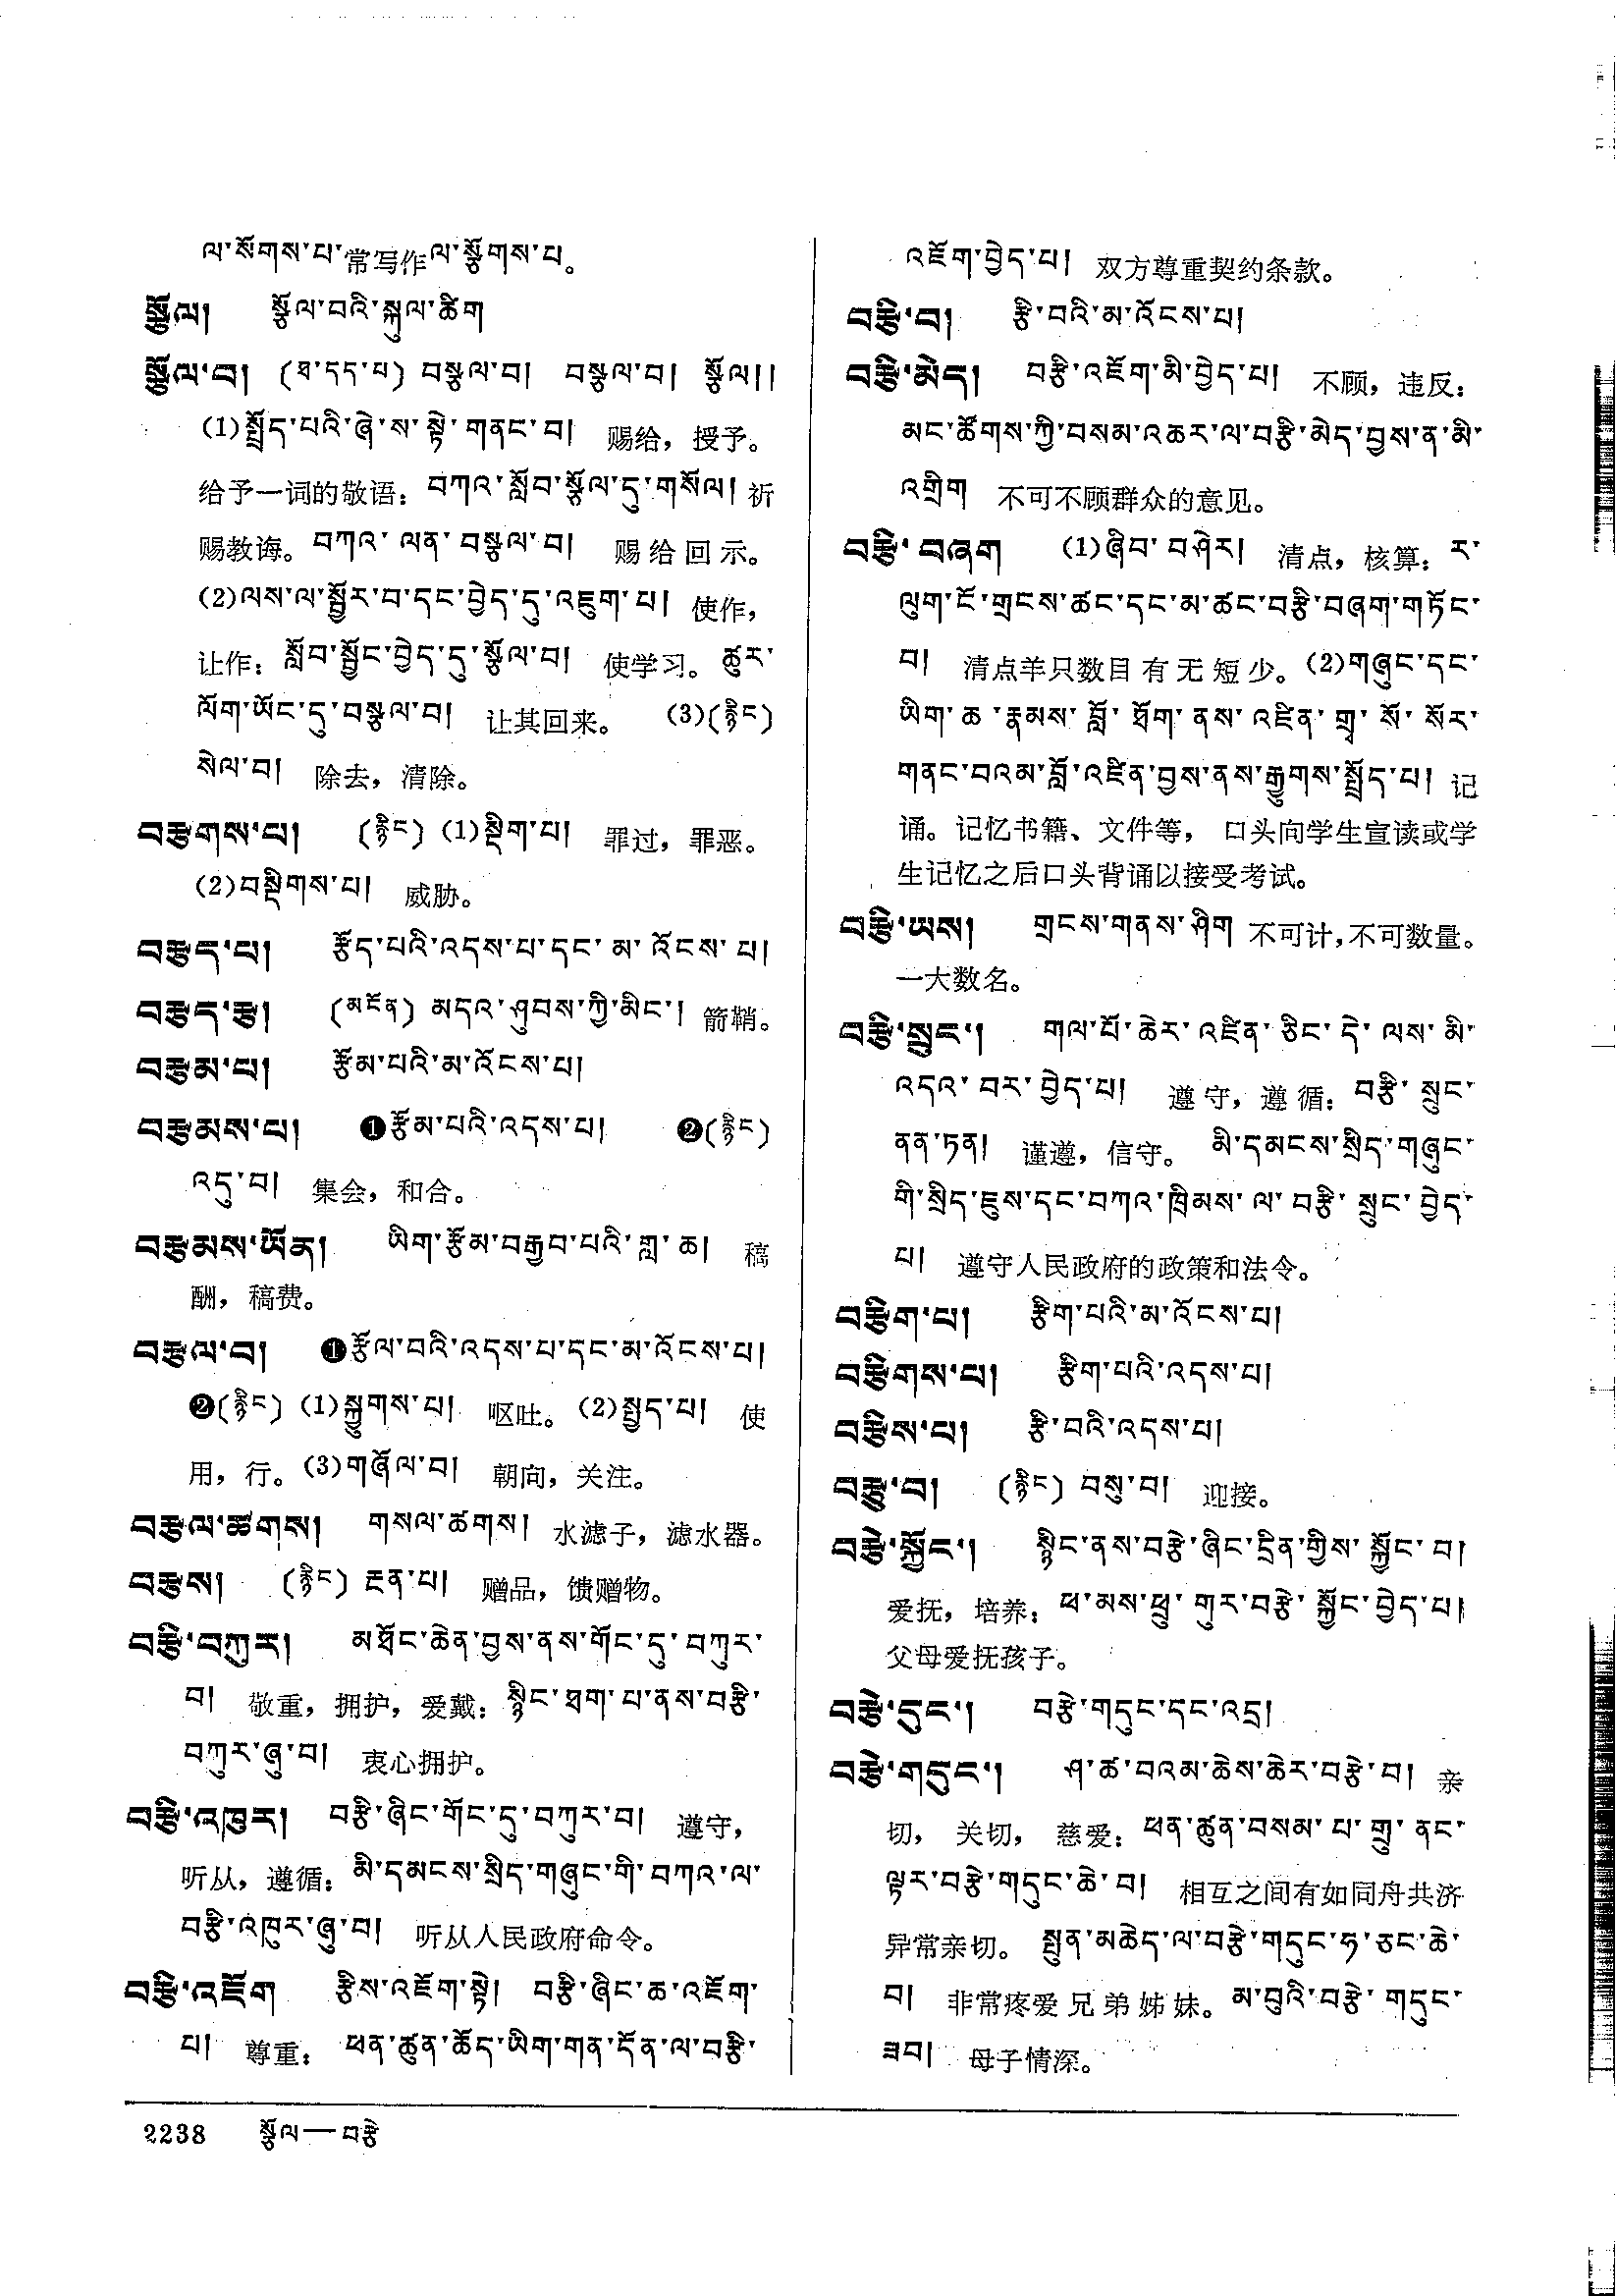 ལ་སོགས་པ་常写作ལ་སྩོགས་པ。
སྩོལ། སྩོལ་བའི་སྐུལ་ཚིག
སྩོལ་བ། (ཐ་དད་པ) བསྩལ་བ། བསྩལ་བ། སྩོལ།།
(1)སྤྲོད་པའི་ཞེ་ས་སྟེ་གནང་བ། 赐给，授予。
给予一词的敬语：བཀའ་སློབ་སྩོལ་དུ་གསོལ། 祈
赐教诲。བཀའ་ལན་བསྩལ་བ། 赐给回示。
(2)ལས་ལ་སྦྱོར་བ་དང་བྱེད་དུ་འཇུག་པ། 使作，
让作：སློབ་སྦྱོང་བྱེད་དུ་སྩོལ་བ། 使学习。ཚུར་
ལོག་ཡོང་དུ་བསྩལ་བ། 让其回来。 (3)(རྙིང)
སེལ་བ། 除去，清除。
བརྩགས་པ། (རྙིང) (1)སྡིག་པ། 罪过，罪恶。
(2)བསྡིགས་པ། 威胁。
བརྩད་པ། རྩོད་པའི་འདས་པ་དང་མ་འོངས་པ།
བརྩད་རྩ། (མངོན) མདའ་ཤུབས་ཀྱི་མིང་། 箭鞘。
བརྩམ་པ། རྩོམ་པའི་མ་འོངས་པ།
བརྩམས་པ། ❶རྩོམ་པའི་འདས་པ། ❷(རྙིང)
འདུ་བ། 集会，和合。
བརྩམས་ཡོན། ཡིག་རྩོམ་བརྒྱབ་པའི་གླ་ཆ། 稿
酬，稿费。
བརྩལ་བ། ❶རྩོལ་བའི་འདས་པ་དང་མ་འོངས་པ།
❷(རྙིང) (1)སྐྱུགས་པ། 呕吐。(2)སྤྱད་པ། 使
用，行。(3)གཞོལ་བ། 朝向，关注。
བརྩལ་ཚགས། གསལ་ཚགས། 水滤子，滤水器。
བརྩས། (རྙིང) རྔན་པ། 赠品，馈赠物。
བརྩི་བཀུར། མཐོང་ཆེན་བྱས་ནས་གོང་དུ་བཀུར་
བ། 敬重，拥护，爱戴：སྙིང་ཐག་པ་ནས་བརྩི་
བཀུར་ཞུ་བ། 衷心拥护。
བརྩི་འཁུར། བརྩི་ཞིང་གོང་དུ་བཀུར་བ། 遵守，
听从，遵循：མི་དམངས་སྲིད་གཞུང་གི་བཀའ་ལ་
བརྩི་འཁུར་ཞུ་བ། 听从人民政府命令。
བརྩི་འཇོག རྩིས་འཇོག་སྟེ། བརྩི་ཞིང་ཆ་འཇོག་
པ། 尊重：ཕན་ཚུན་ཆོད་ཡིག་གན་དོན་ལ་བརྩི་
འཇོག་བྱེད་པ། 双方尊重契约条款。
བརྩི་བ། རྩི་བའི་མ་འོངས་པ།
བརྩི་མེད། བརྩི་འཇོག་མི་བྱེད་པ། 不顾，违反：
མང་ཚོགས་ཀྱི་བསམ་འཆར་ལ་བརྩི་མེད་བྱས་ན་མི་
འགྲིག 不可不顾群众的意见。
བརྩི་བཞག (1)ཞིབ་བཤེར། 清点，核算：ར་
ལུག་ངོ་གྲངས་ཚང་དང་མ་ཚང་བརྩི་བཞག་གཏོང་
བ། 清点羊只数目有无短少。(2)གཞུང་དང་
ཡིག་ཆ་རྣམས་བློ་ཐོག་ནས་འཛིན་གྲྭ་སོ་སོར་
གནང་བའམ་བློ་འཛིན་བྱས་ནས་རྒྱུགས་སྤྲོད་པ། 记
诵。记忆书籍、文件等，口头向学生宣读或学
生记忆之后口头背诵以接受考试。
བརྩི་ཡས། གྲངས་གནས་ཤིག 不可计，不可数量。
一大数名。
བརྩི་སྲུང་། གལ་པོ་ཆེར་འཛིན་ཅིང་དེ་ལས་མི་
འདའ་བར་བྱེད་པ། 遵守，遵循：བརྩི་སྲུང་
ནན་ཏན། 谨遵，信守。 མི་དམངས་སྲིད་གཞུང་
གི་སྲིད་ཇུས་དང་བཀའ་ཁྲིམས་ལ་བརྩི་སྲུང་བྱེད་
པ། 遵守人民政府的政策和法令。
བརྩིག་པ། རྩིག་པའི་མ་འོངས་པ།
བརྩིགས་པ། རྩིག་པའི་འདས་པ།
བརྩིས་པ། རྩི་བའི་འདས་པ།
བརྩུ་བ། (རྙིང) བསུ་བ། 迎接。
བརྩེ་སྐྱོང་། སྙིང་ནས་བརྩེ་ཞིང་དྲིན་གྱིས་སྐྱོང་བ།
爱抚，培养：ཕ་མས་ཕྲུ་གུར་བརྩེ་སྐྱོང་བྱེད་པ།
父母爱抚孩子。
བརྩེ་དུང་། བརྩེ་གདུང་དང་འདྲ།
བརྩེ་གདུང་། ཤ་ཚ་བའམ་ཆེས་ཆེར་བརྩེ་བ། 亲
切，关切，慈爱：ཕན་ཚུན་བསམ་པ་གྲུ་ནང་
ལྟར་བརྩེ་གདུང་ཆེ་བ། 相互之间有如同舟共济
异常亲切。 སྤུན་མཆེད་ལ་བརྩེ་གདུང་ཧ་ཅང་ཆེ་
བ། 非常疼爱兄弟姊妹。མ་བུའི་བརྩེ་གདུང་
ཟབ། 母子情深。
2238 སྩོལ—བརྩེ